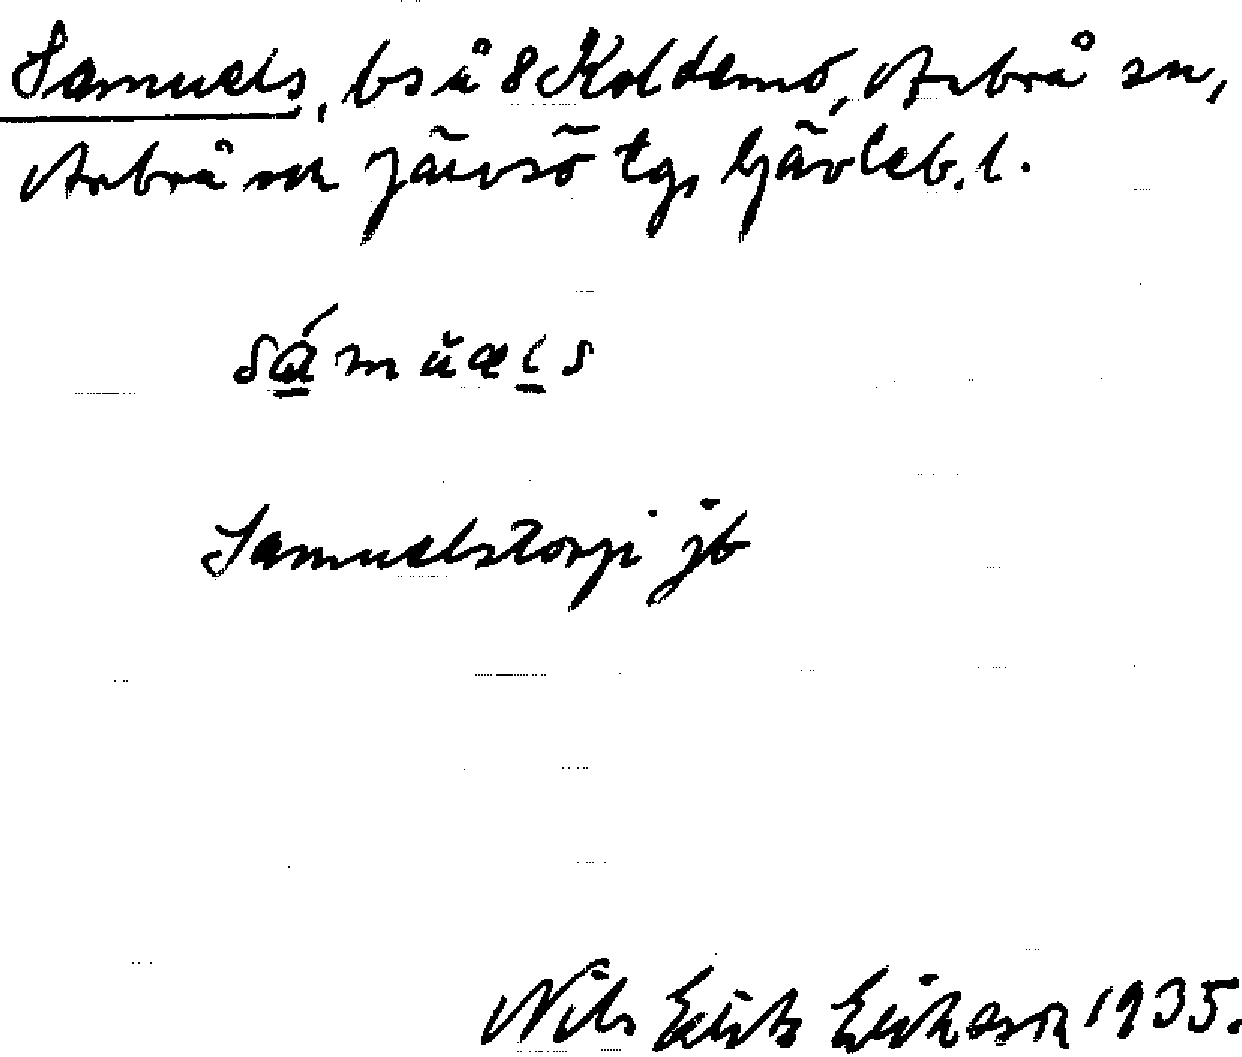 Samuels, bs å 8 Koldemo, Arbrå sn,
Arbrå och Järvsö tg, Gävleb. l.
sámŭæls
Samuelstorp jb
Nils Eriksson 1935.